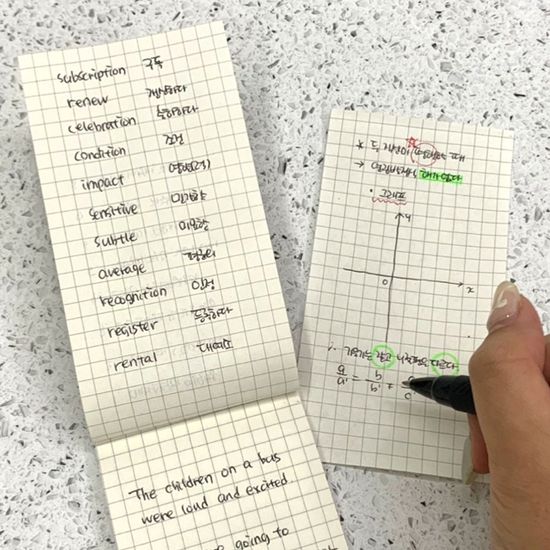 subscription 구독
renew 갱신하다
celebration 축하하다
condition 조건
impact 영향(력)
sensitive 민감한
subtle 미묘한
average 평균의
recognition 인정
register 등록하다
rental 대여료
The children on a bus
were loud and excited.
going to
* 두 직선이 평행할 때
→ 연립방정식 해가 없다
• 그래프
y
0
x
∴ 기울기는 같고 y절편은 다르다.
a/a' = b/b' ≠ c/c'